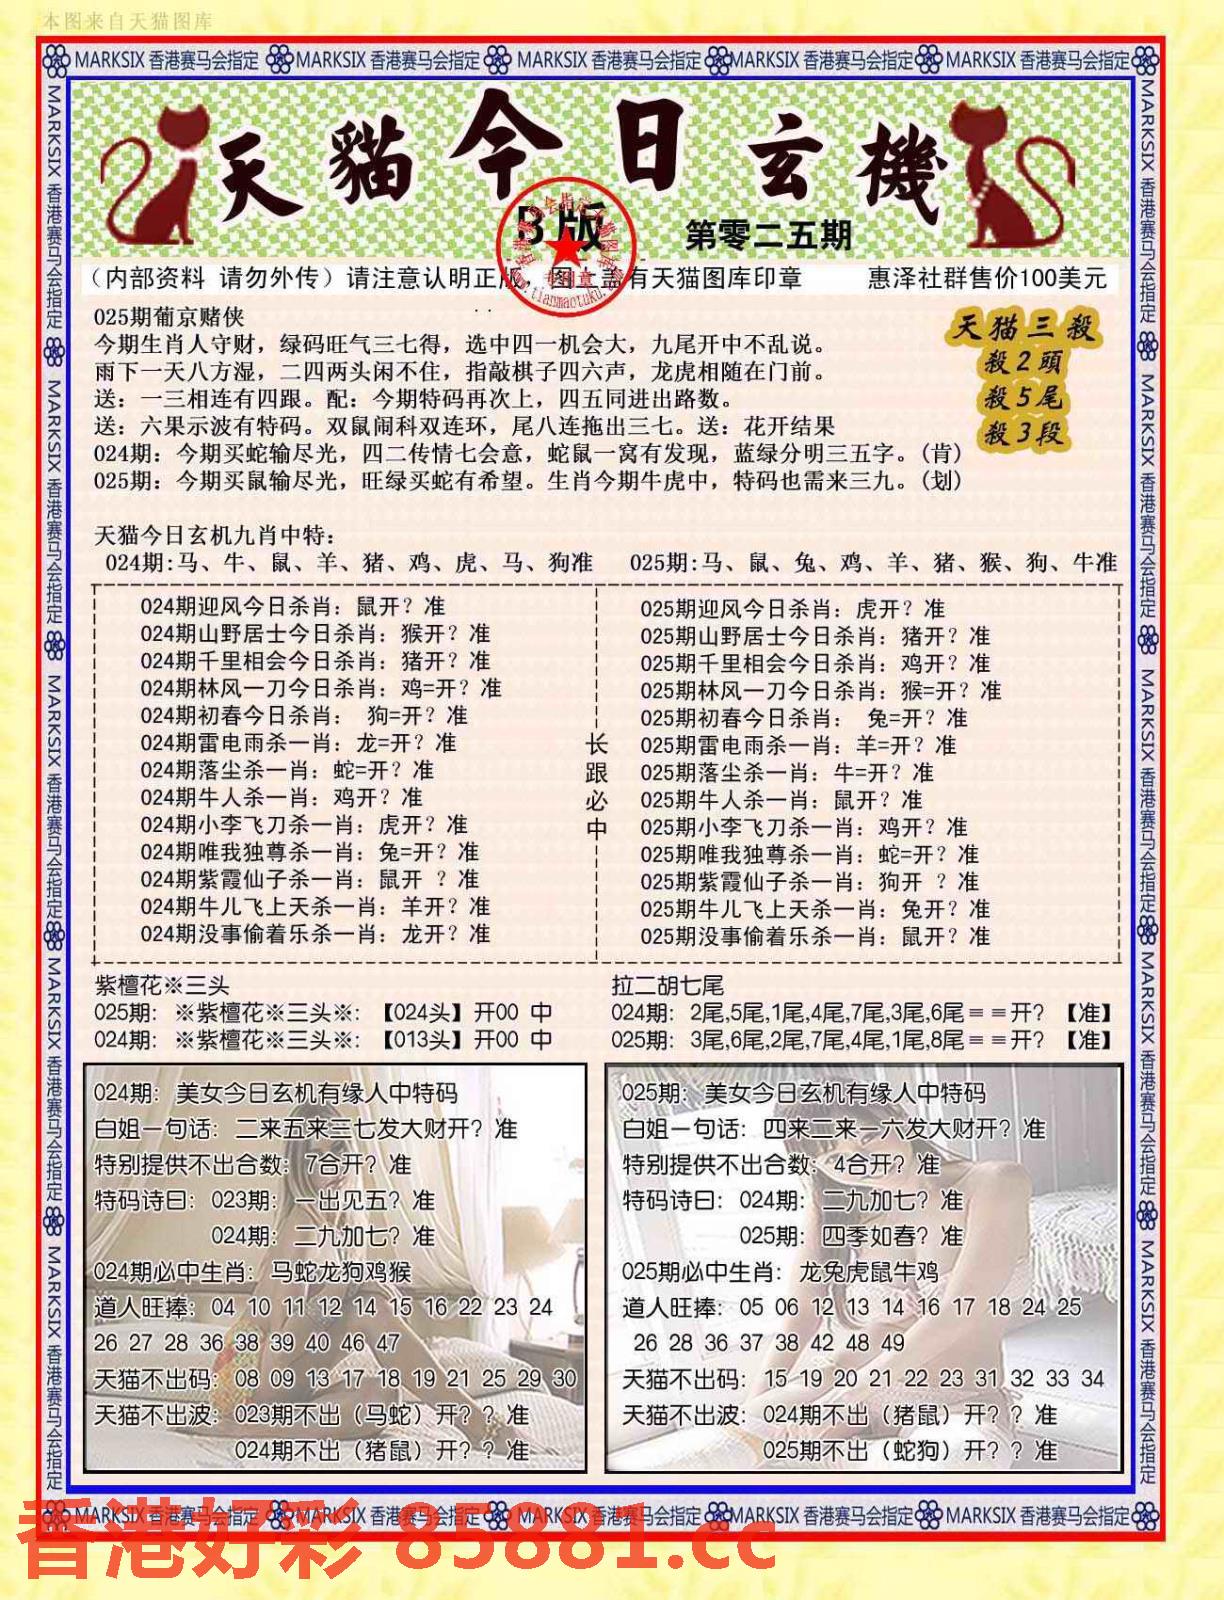 本图来自天猫图库
MARKSIX 香港赛马会指定 MARKSIX 香港赛马会指定 MARKSIX 香港赛马会指定 MARKSIX 香港赛马会指定 MARKSIX 香港赛马会指定
天貓今日玄機
B版
第零二五期
(内部资料 请勿外传)请注意认明正版 图上盖有天猫图库印章 惠泽社群售价100美元
025期葡京赌侠
今期生肖人守财，绿码旺气三七得，选中四一机会大，九尾开中不乱说。
雨下一天八方湿，二四两头闲不住，指敲棋子四六声，龙虎相随在门前。
送：一三相连有四跟。配：今期特码再次上，四五同进出路数。
送：六果示波有特码。双鼠闹科双连环，尾八连拖出三七。送：花开结果
024期：今期买蛇输尽光，四二传情七会意，蛇鼠一窝有发现，蓝绿分明三五字。(肯)
025期：今期买鼠输尽光，旺绿买蛇有希望。生肖今期牛虎中，特码也需来三九。(划)
天猫三殺
殺2頭
殺5尾
殺3段
天猫今日玄机九肖中特：
024期:马、牛、鼠、羊、猪、鸡、虎、马、狗准 025期:马、鼠、兔、鸡、羊、猪、猴、狗、牛准
024期迎风今日杀肖：鼠开？准
024期山野居士今日杀肖：猴开？准
024期千里相会今日杀肖：猪开？准
024期林风一刀今日杀肖：鸡=开？准
024期初春今日杀肖： 狗=开？准
024期雷电雨杀一肖：龙=开？准
024期落尘杀一肖：蛇=开？准
024期牛人杀一肖：鸡开？准
024期小李飞刀杀一肖：虎开？准
024期唯我独尊杀一肖：兔=开？准
024期紫霞仙子杀一肖：鼠开 ？准
024期牛儿飞上天杀一肖：羊开？准
024期没事偷着乐杀一肖：龙开？准
长跟必中
025期迎风今日杀肖：虎开？准
025期山野居士今日杀肖：猪开？准
025期千里相会今日杀肖：鸡开？准
025期林风一刀今日杀肖：猴=开？准
025期初春今日杀肖： 兔=开？准
025期雷电雨杀一肖：羊=开？准
025期落尘杀一肖：牛=开？准
025期牛人杀一肖：鼠开？准
025期小李飞刀杀一肖：鸡开？准
025期唯我独尊杀一肖：蛇=开？准
025期紫霞仙子杀一肖：狗开 ？准
025期牛儿飞上天杀一肖：兔开？准
025期没事偷着乐杀一肖：鼠开？准
紫檀花※三头
025期：※紫檀花※三头※：【024头】开00 中
024期：※紫檀花※三头※：【013头】开00 中
拉二胡七尾
024期：2尾,5尾,1尾,4尾,7尾,3尾,6尾＝＝开？【准】
025期：3尾,6尾,2尾,7尾,4尾,1尾,8尾＝＝开？【准】
024期：美女今日玄机有缘人中特码
白姐一句话：二来五来三七发大财开？准
特别提供不出合数：7合开？准
特码诗曰：023期：一出见五？准
024期：二九加七？准
024期必中生肖：马蛇龙狗鸡猴
道人旺捧：04 10 11 12 14 15 16 22 23 24
26 27 28 36 38 39 40 46 47
天猫不出码：08 09 13 17 18 19 21 25 29 30
天猫不出波：023期不出（马蛇）开？？准
024期不出（猪鼠）开？？准
025期：美女今日玄机有缘人中特码
白姐一句话：四来二来一六发大财开？准
特别提供不出合数：4合开？准
特码诗曰：024期：二九加七？准
025期：四季如春？准
025期必中生肖：龙兔虎鼠牛鸡
道人旺捧：05 06 12 13 14 16 17 18 24 25
26 28 36 37 38 42 48 49
天猫不出码：15 19 20 21 22 23 31 32 33 34
天猫不出波：024期不出（猪鼠）开？？准
025期不出（蛇狗）开？？准
MARKSIX 香港赛马会指定 MARKSIX 香港赛马会指定 MARKSIX 香港赛马会指定 MARKSIX 香港赛马会指定 MARKSIX 香港赛马会指定
MARKSIX 香港赛马会指定 MARKSIX 香港赛马会指定 MARKSIX 香港赛马会指定 MARKSIX 香港赛马会指定 MARKSIX 香港赛马会指定
MARKSIX 香港赛马会指定 MARKSIX 香港赛马会指定 MARKSIX 香港赛马会指定 MARKSIX 香港赛马会指定 MARKSIX 香港赛马会指定
香港好彩 85881.cc